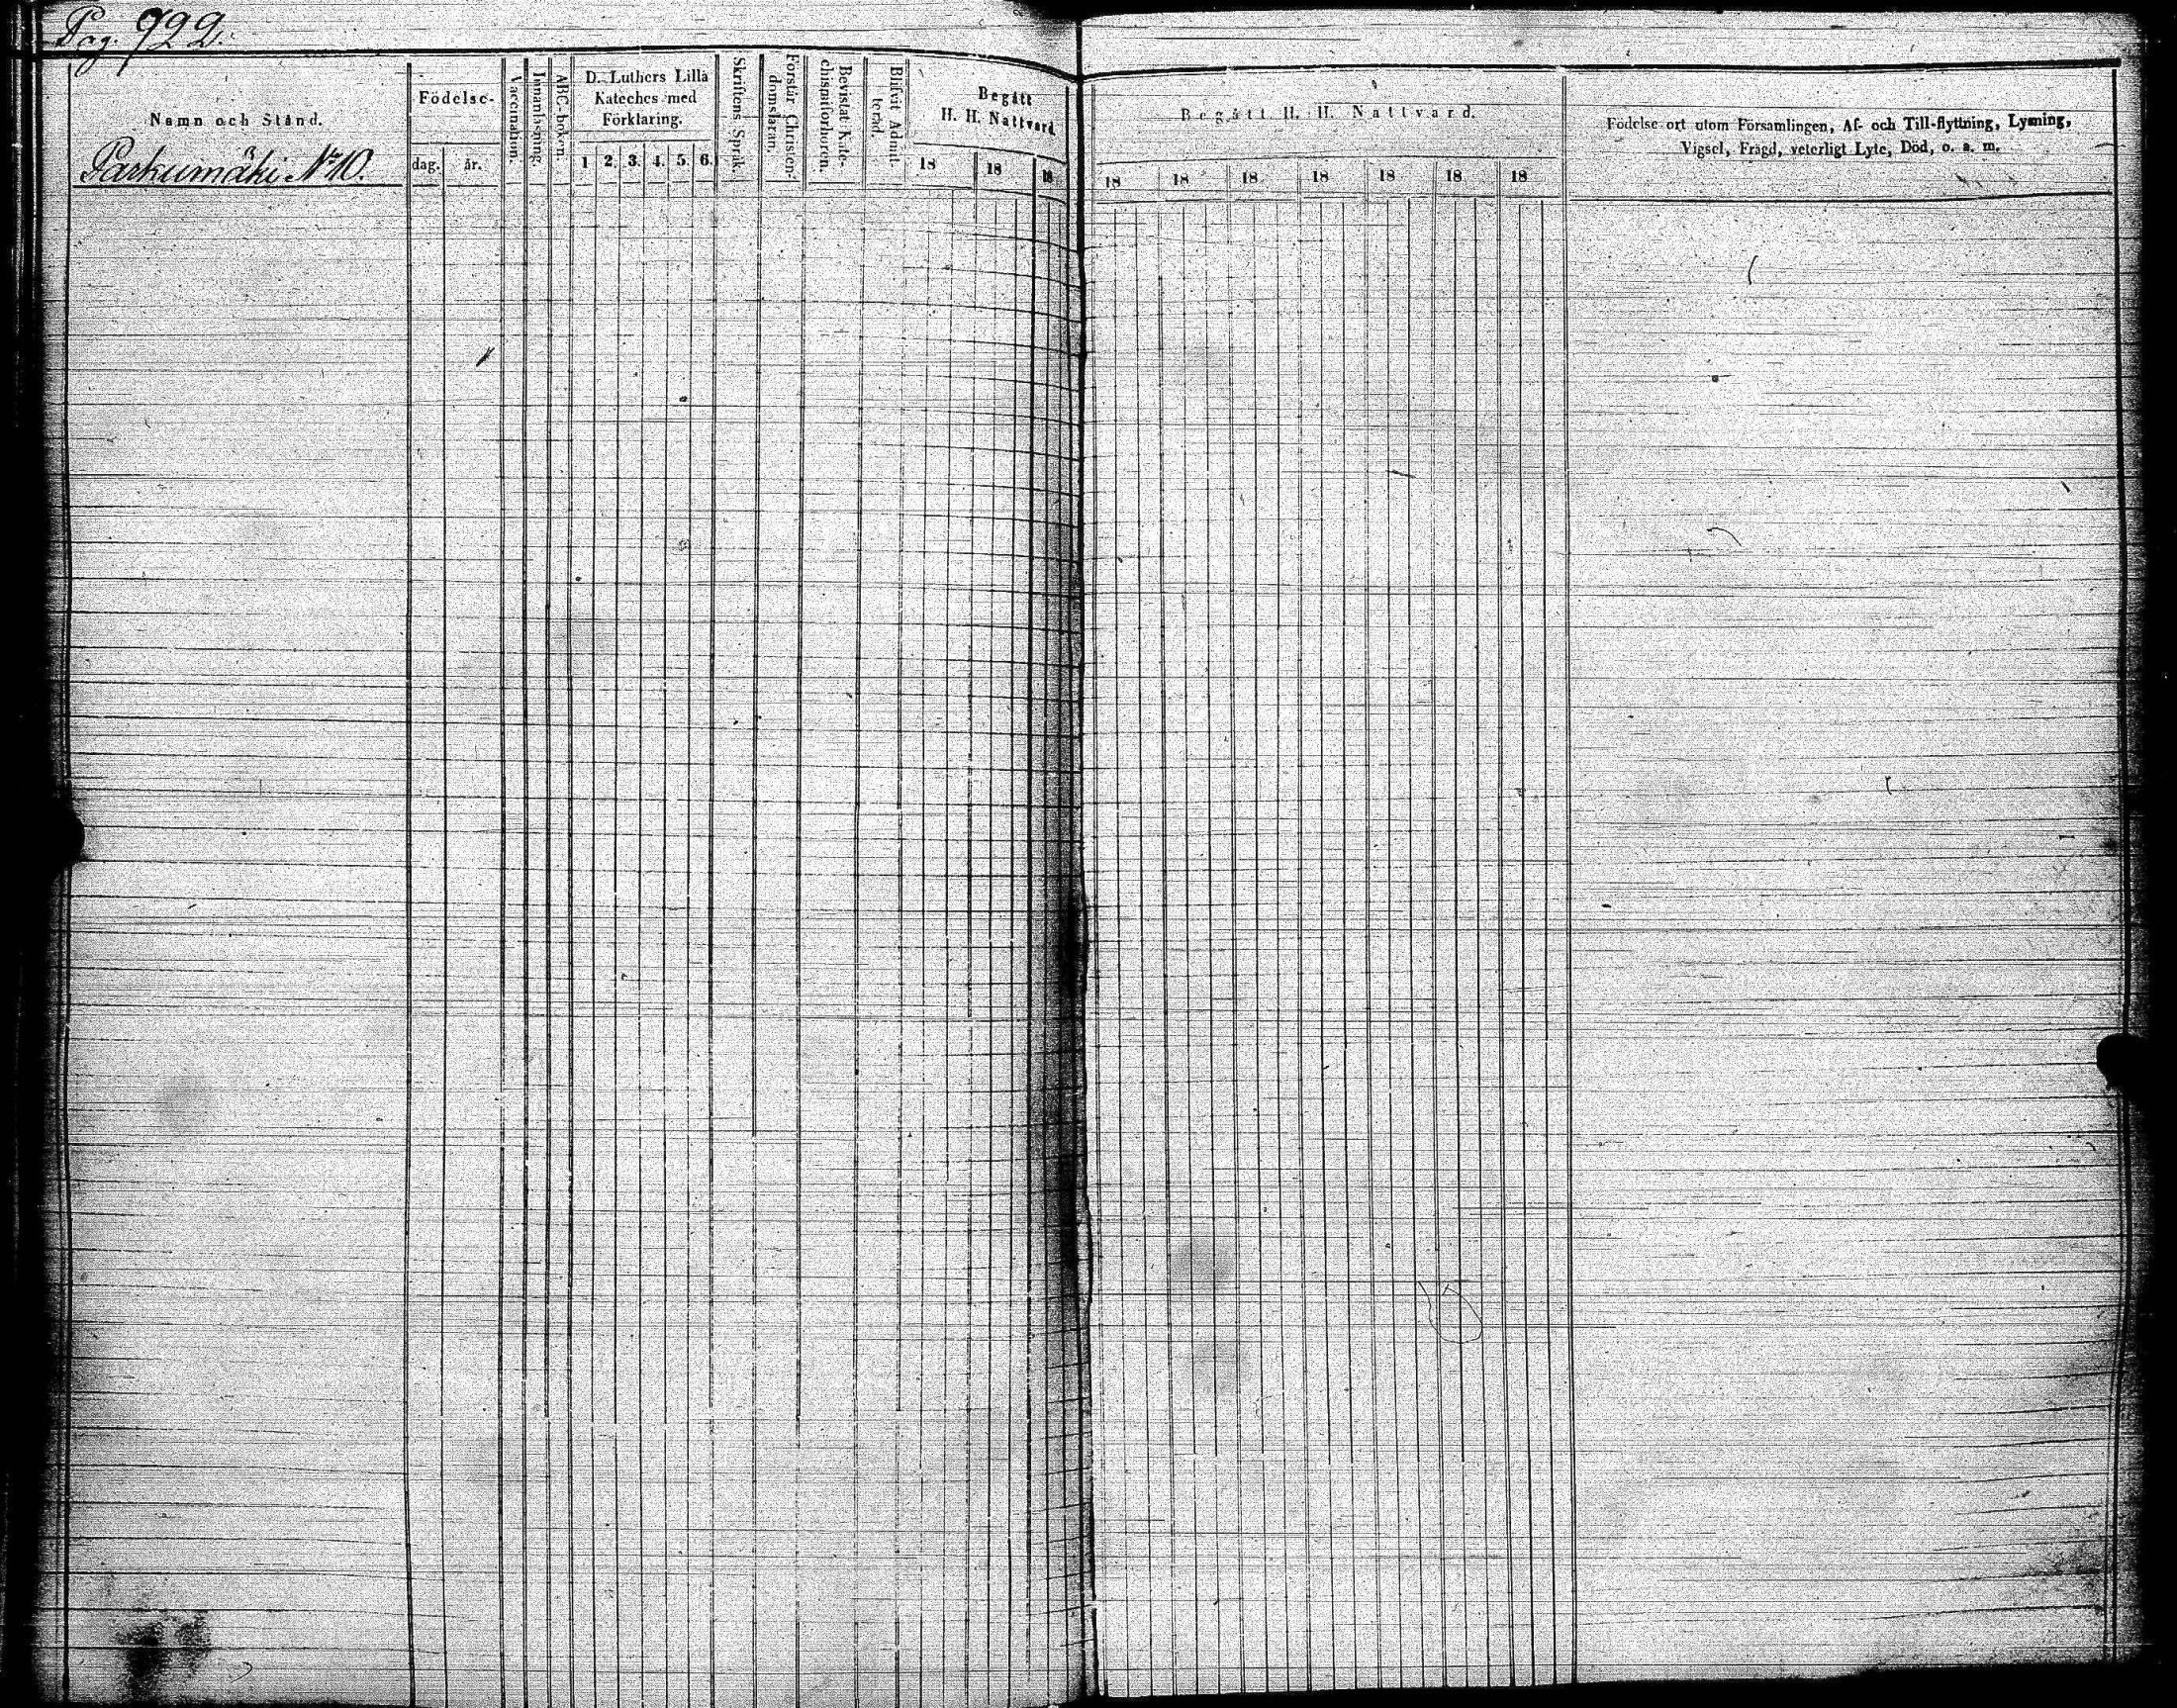 Pag. 922.
Namn och Stånd.
Parkumäki № 10.
Födelse-
dag.
år.
Vaccination.
Innanläsning.
ABC-boken.
D. Luthers Lilla
Kateches med
Förklaring.
1 2. 3. 4. 5. 6.
Skriftens Språk.
Förstår Christen-
domsläran.
Bevistat Kate-
chismiförhören.
Blifvit Admit-
terad.
Begått
H. H. Nattvard
18 18 18
Begått H. H. Nattvard.
18 18 18 18 18 18 18
Födelse-ort utom Församlingen, Af- och Till-flyttning, Lysning,
Vigsel, Frägd, veterligt Lyte, Död, o. s. m.